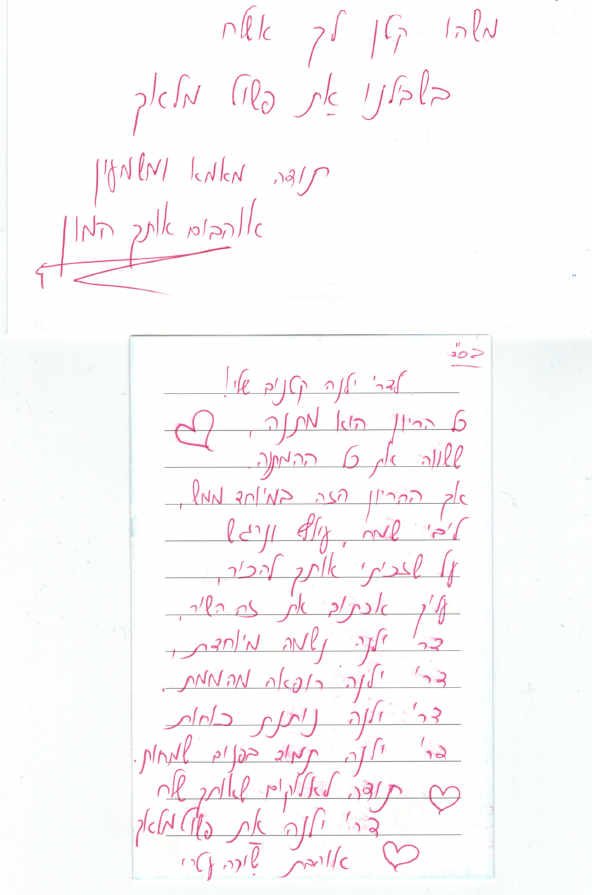 משהו קטן לך אשלח
בשבילנו אַת פשוט מלאך
תודה מאמא ומשמעון
אוהבים אותך המון
בס"ד
לדר' ילנה קטנים שלי!
כל הריון הוא מתנה,
ששווה את כל ההמתנה.
אך ההריון הזה במיוחד ממש,
ליבי שמח, עולץ ונרגש
על שזכיתי אותך להכיר,
עליך אכתוב את זה השיר,
דר' ילנה נשמה מיוחדת,
דר' ילנה רופאה מהממת.
דר' ילנה נותנת כוחות
דר' ילנה תמיד בפנים שמחות.
תודה לאלוקים שאותך שלח
דר' ילנה את פשוט מלאך
אוהבת שירה עטרי